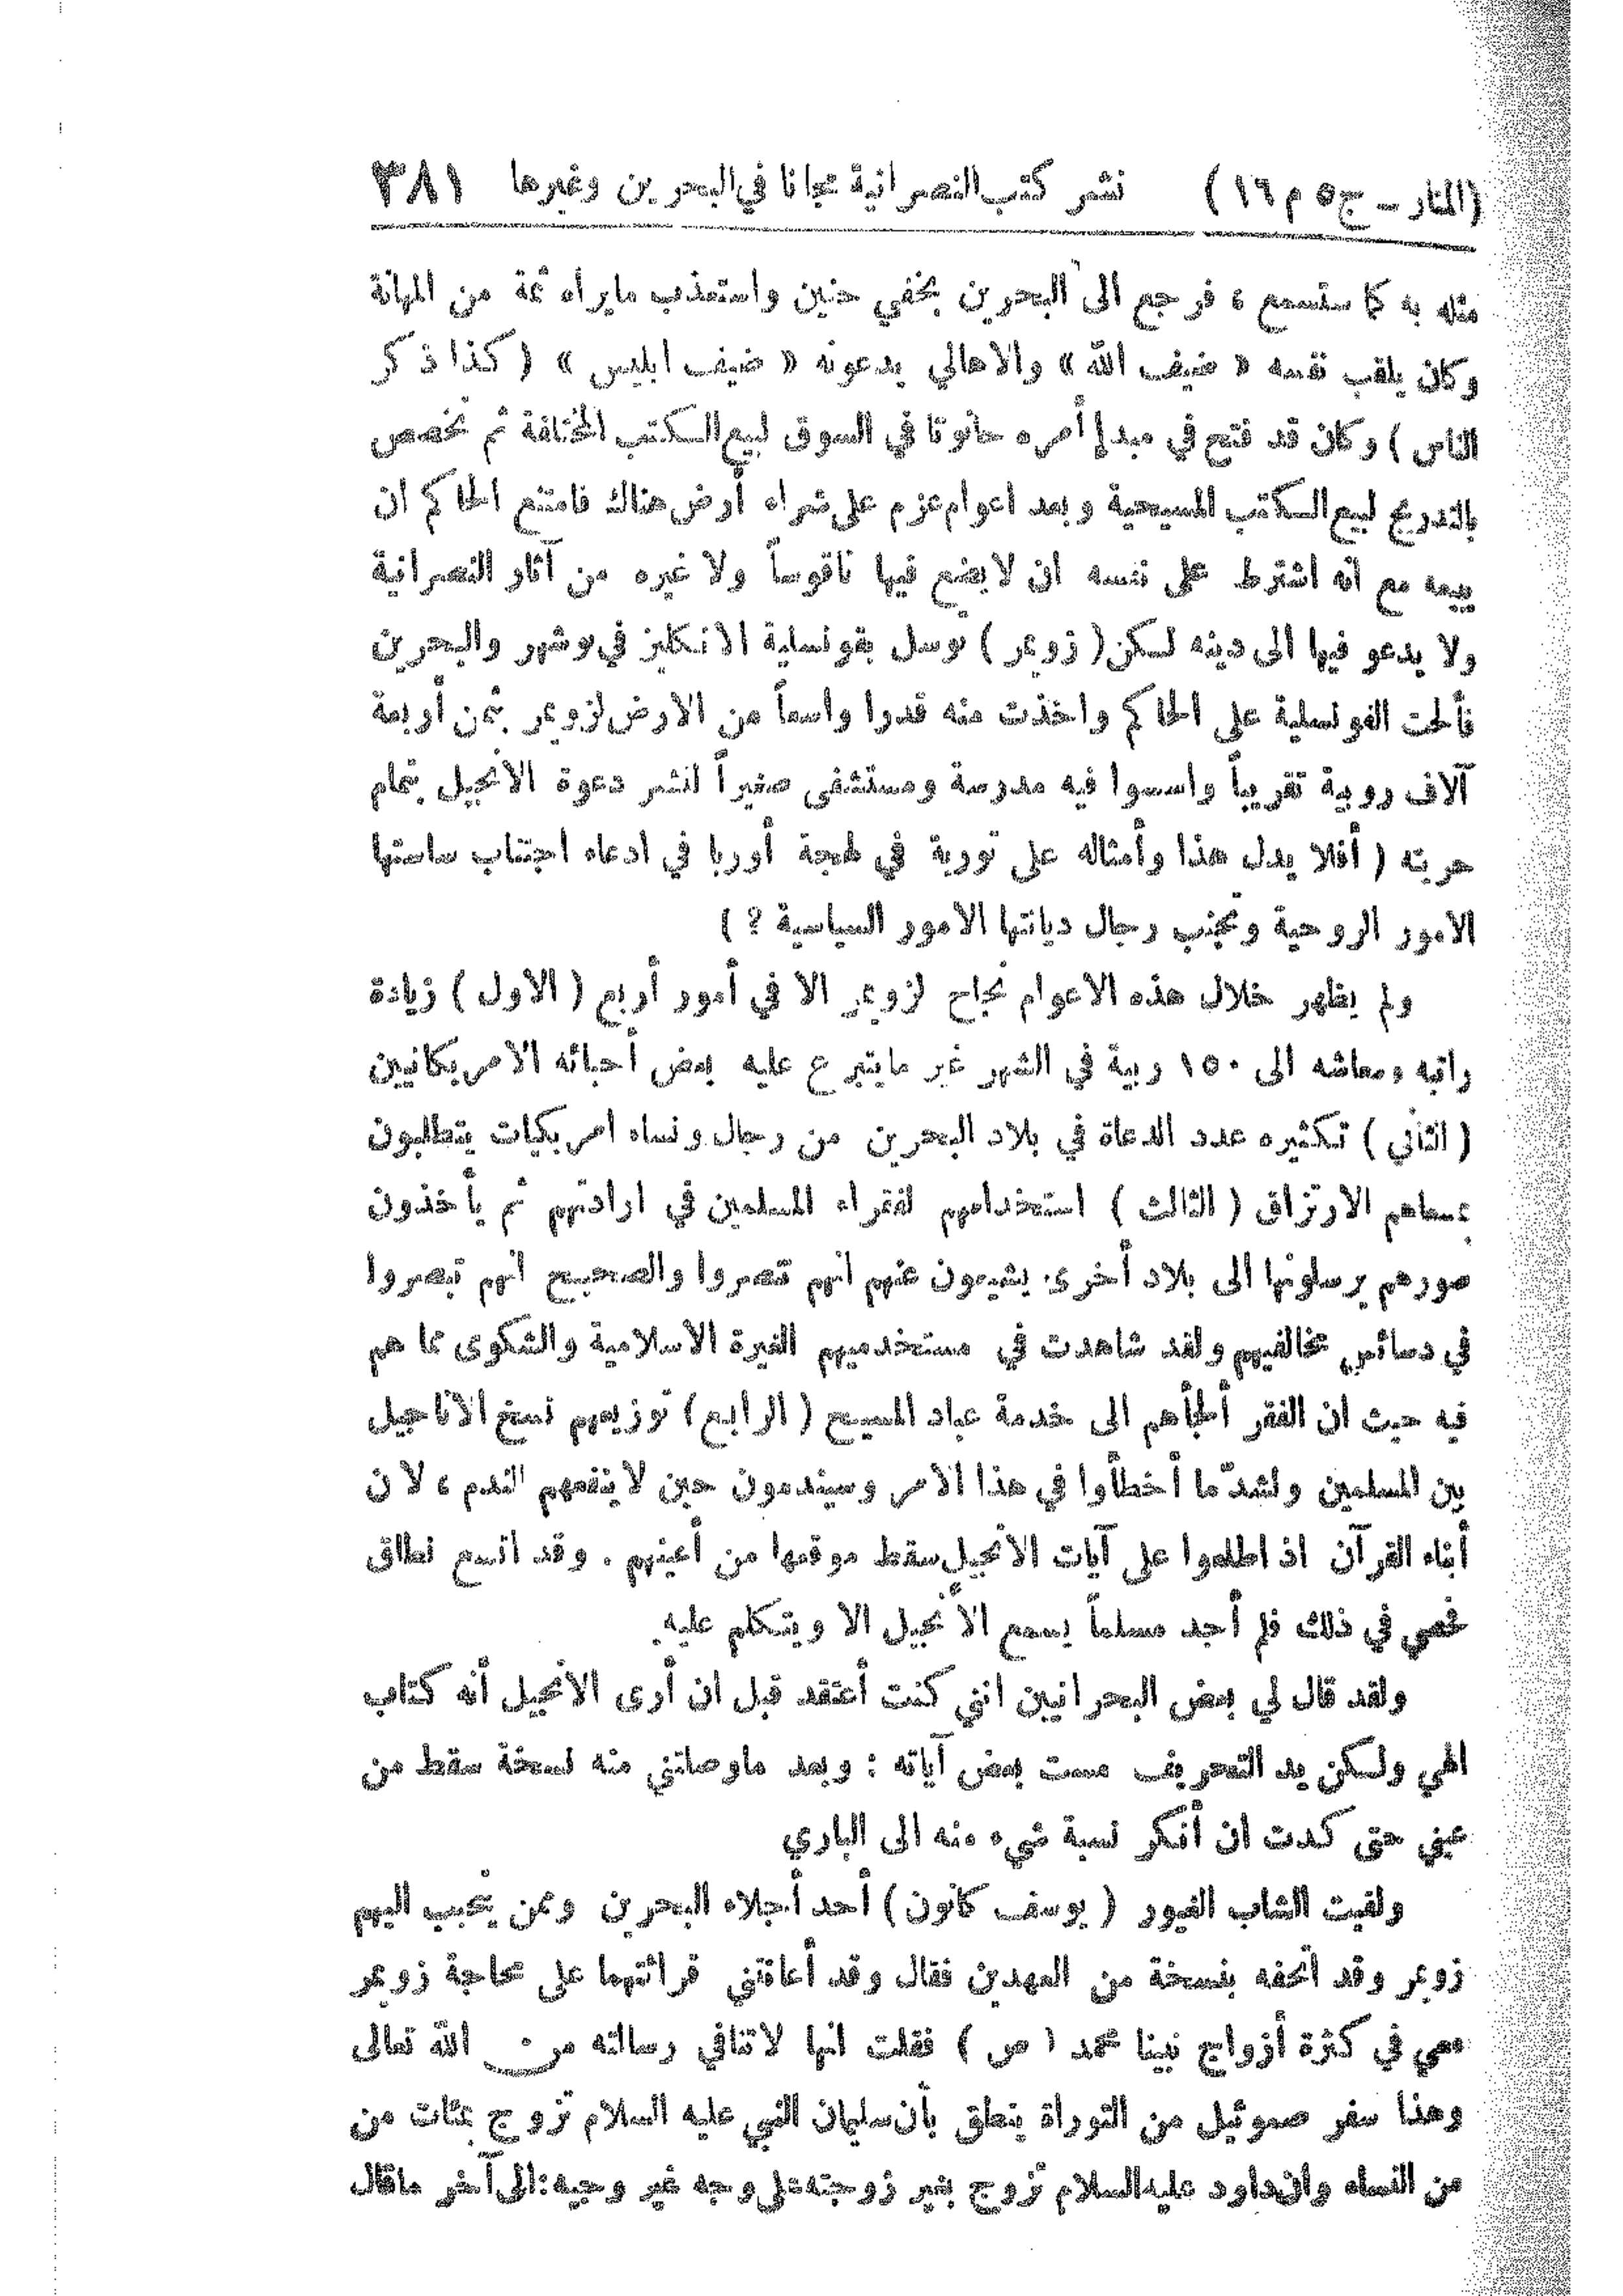 (المنار – ج ٥ م ١٦) نشر كتب النصرانية مجانا في البحرين وغيرها ٣٨١
مثله به كما ستسمع ، فرجع الى البحرين بخفي حنين واستعذب مايراه ثمة من المهانة
وكان يلقب نفسه « ضيف الله » والاهالي يدعونه « ضيف ابليس » ( كذا ذكر
الناس ) وكان قد فتح في مبدإ أمره حانوتا في السوق لبيع الكتب المختلفة ثم تخصص
بالتدريج لبيع الكتب المسيحية وبعد اعوام عزم على شراء أرض هناك فامتنع الحاكم ان
يبيعه مع انه اشترط على نفسه ان لايضع فيها ناقوساً ولا غيره من آثار النصرانية
ولا يدعو فيها الى دينه لكن ( زويمر ) توسل بقونسلية الانكليز في بوشهر والبحرين
فألحت القونسلية على الحاكم واخذت منه قدرا واسعاً من الارض لزويمر بثمن أربعة
آلاف روبية تقريباً واسسوا فيه مدرسة ومستشفى صغيراً لنشر دعوة الانجيل بتمام
حريته ( أفلا يدل هذا وأمثاله على تورية في لهجة أوربا في ادعاء اجتناب ساستها
الامور الروحية وتجنب رجال ديانتها الامور السياسية ؟ )
ولم يظهر خلال هذه الاعوام نجاح لزويمر الا في أمور أربع ( الاول ) زيادة
راتبه ومعاشه الى ١٥٠ ربية في الشهر غير مايتبرع عليه بعض أحبائه الامريكانيين
( الثاني ) تكثيره عدد الدعاة في بلاد البحرين من رجال ونساء امريكيات يتطلبون
بمسعاهم الارتزاق ( الثالث ) استخدامهم لفقراء المسلمين في ارادتهم ثم يأخذون
صورهم يرسلونها الى بلاد أخرى يشيعون عنهم انهم تنصروا والصحيح انهم تبصروا
في دسائس مخالفيهم ولقد شاهدت في مستخدميهم الغيرة الاسلامية والشكوى مما هم
فيه حيث ان الفقر ألجأهم الى خدمة عباد المسيح ( الرابع ) توزيعهم نسخ الاناجيل
بين المسلمين ولشدّ ما أخطأوا في هذا الامر وسيندمون حين لاينفعهم الندم ، لان
أبناء القرآن اذ اطلعوا على آيات الانجيل سقط موقعها من أعينهم . وقد اتسع نطاق
فحصي في ذلك فلم أجد مسلماً يسمع الأنجيل الا ويتكلم عليه
ولقد قال لي بعض البحرانيين انني كنت أعتقد قبل ان أرى الانجيل أنه كتاب
الهي ولكن يد التحريف مست بعض آياته : وبعد ماوصلتني منه نسخة سقط من
عيني حتى كدت ان أنكر نسبة شيء منه الى الباري
ولقيت الشاب الغيور ( يوسف كانون ) أحد أجلاء البحرين وممن يتحبب اليهم
زويمر وقد اتحفه بنسخة من العهدين فقال وقد أعانتني قرائتهما على محاجة زويمر
معي في كثرة أزواج نبينا محمد ( ص ) فقلت انها لاتنافي رسالته من الله تعالى
وهذا سفر صموئيل من التوراة ينطق بأن سليمان النبي عليه السلام تزوج بمئات من
من النساء وان داود عليه السلام تزوج بغير زوجته على وجه غير وجيه : الى آخر ماقال